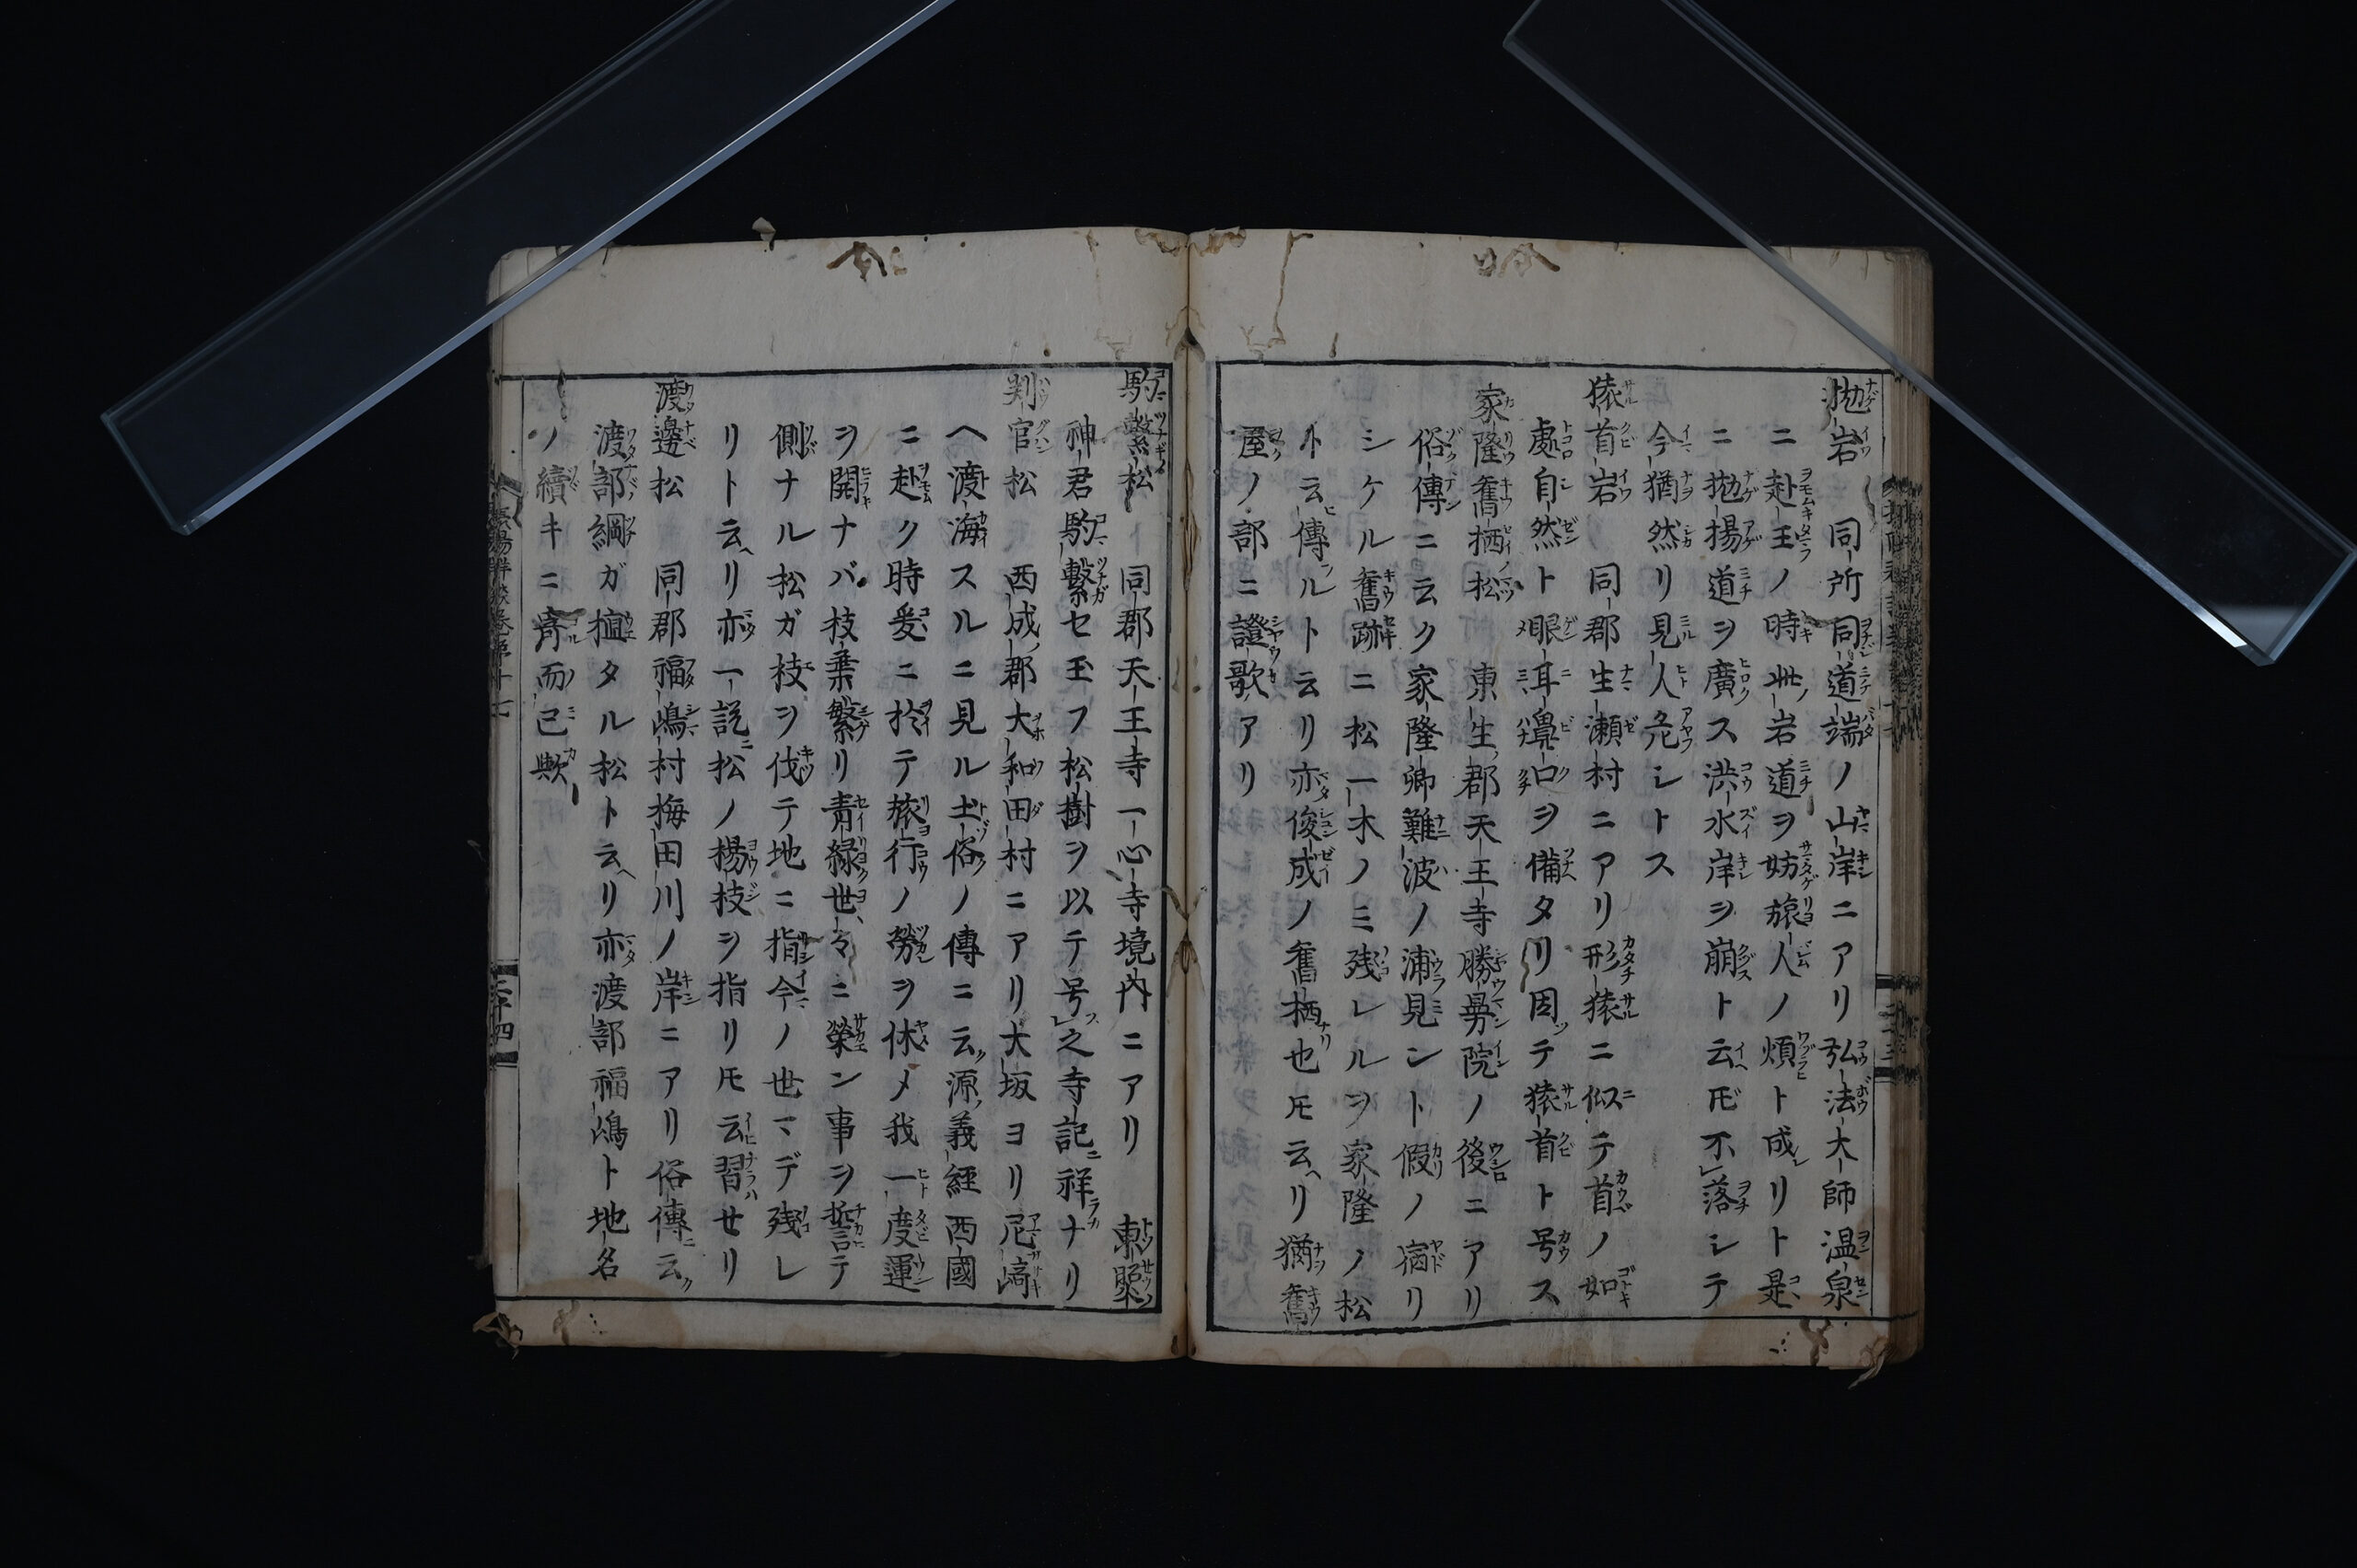 拋岩 同所同道端ノ山岸ニアリ弘法大師温泉
ニ赴玉ノ時此岩道ヲ妨旅人ノ煩ト成リト是
ニ拋揚道ヲ廣ス洪水岸ヲ崩ト云㆑不落シテ
今猶然リ見人危シトス
猿首岩 同郡生瀬村ニアリ形猿ニ似テ首ノ如
處自然ト眼耳鼻口ヲ備タリ因テ猿首ト号ス
家隆舊栖松 東生郡天王寺勝曼院ノ後ニアリ
俗傳ニ云ク家隆卿難波ノ浦見ント假ノ宿リ
シケル舊跡ニ松一木ノミ残レルヲ家隆ノ松
ト云傳ルト云リ亦俊成ノ舊栖也トモ云リ猶舊
屋ノ部ニ證歌アリ
駒繋松 同郡天王寺一心寺境内ニアリ 東照
神君駒繋セ玉フ松樹ヲ以テ号之寺記ニ祥ナリ
判官松 西成郡大和田村ニアリ大坂ヨリ尼崎
ヘ渡海スルニ見ル土俗ノ傳ニ云源義經西國
ニ赴ク時爰ニ於テ旅行ノ勞ヲ休メ我一度運
ヲ開ナバ枝葉繁リ青緑世々ニ榮ン事ヲ誓テ
側ナル松ガ枝ヲ伐テ地ニ指今ノ世マデ残レ
リト云ヘリ亦一説ニ松ノ楊枝ヲ指リトモ云習セリ
渡邊松 同郡福嶋村梅田川ノ岸ニアリ俗傳ニ云ク
渡部綱ガ植タル松ト云ヘリ亦渡部福嶋ト地名
ノ續キニ斉而已歟
三十四